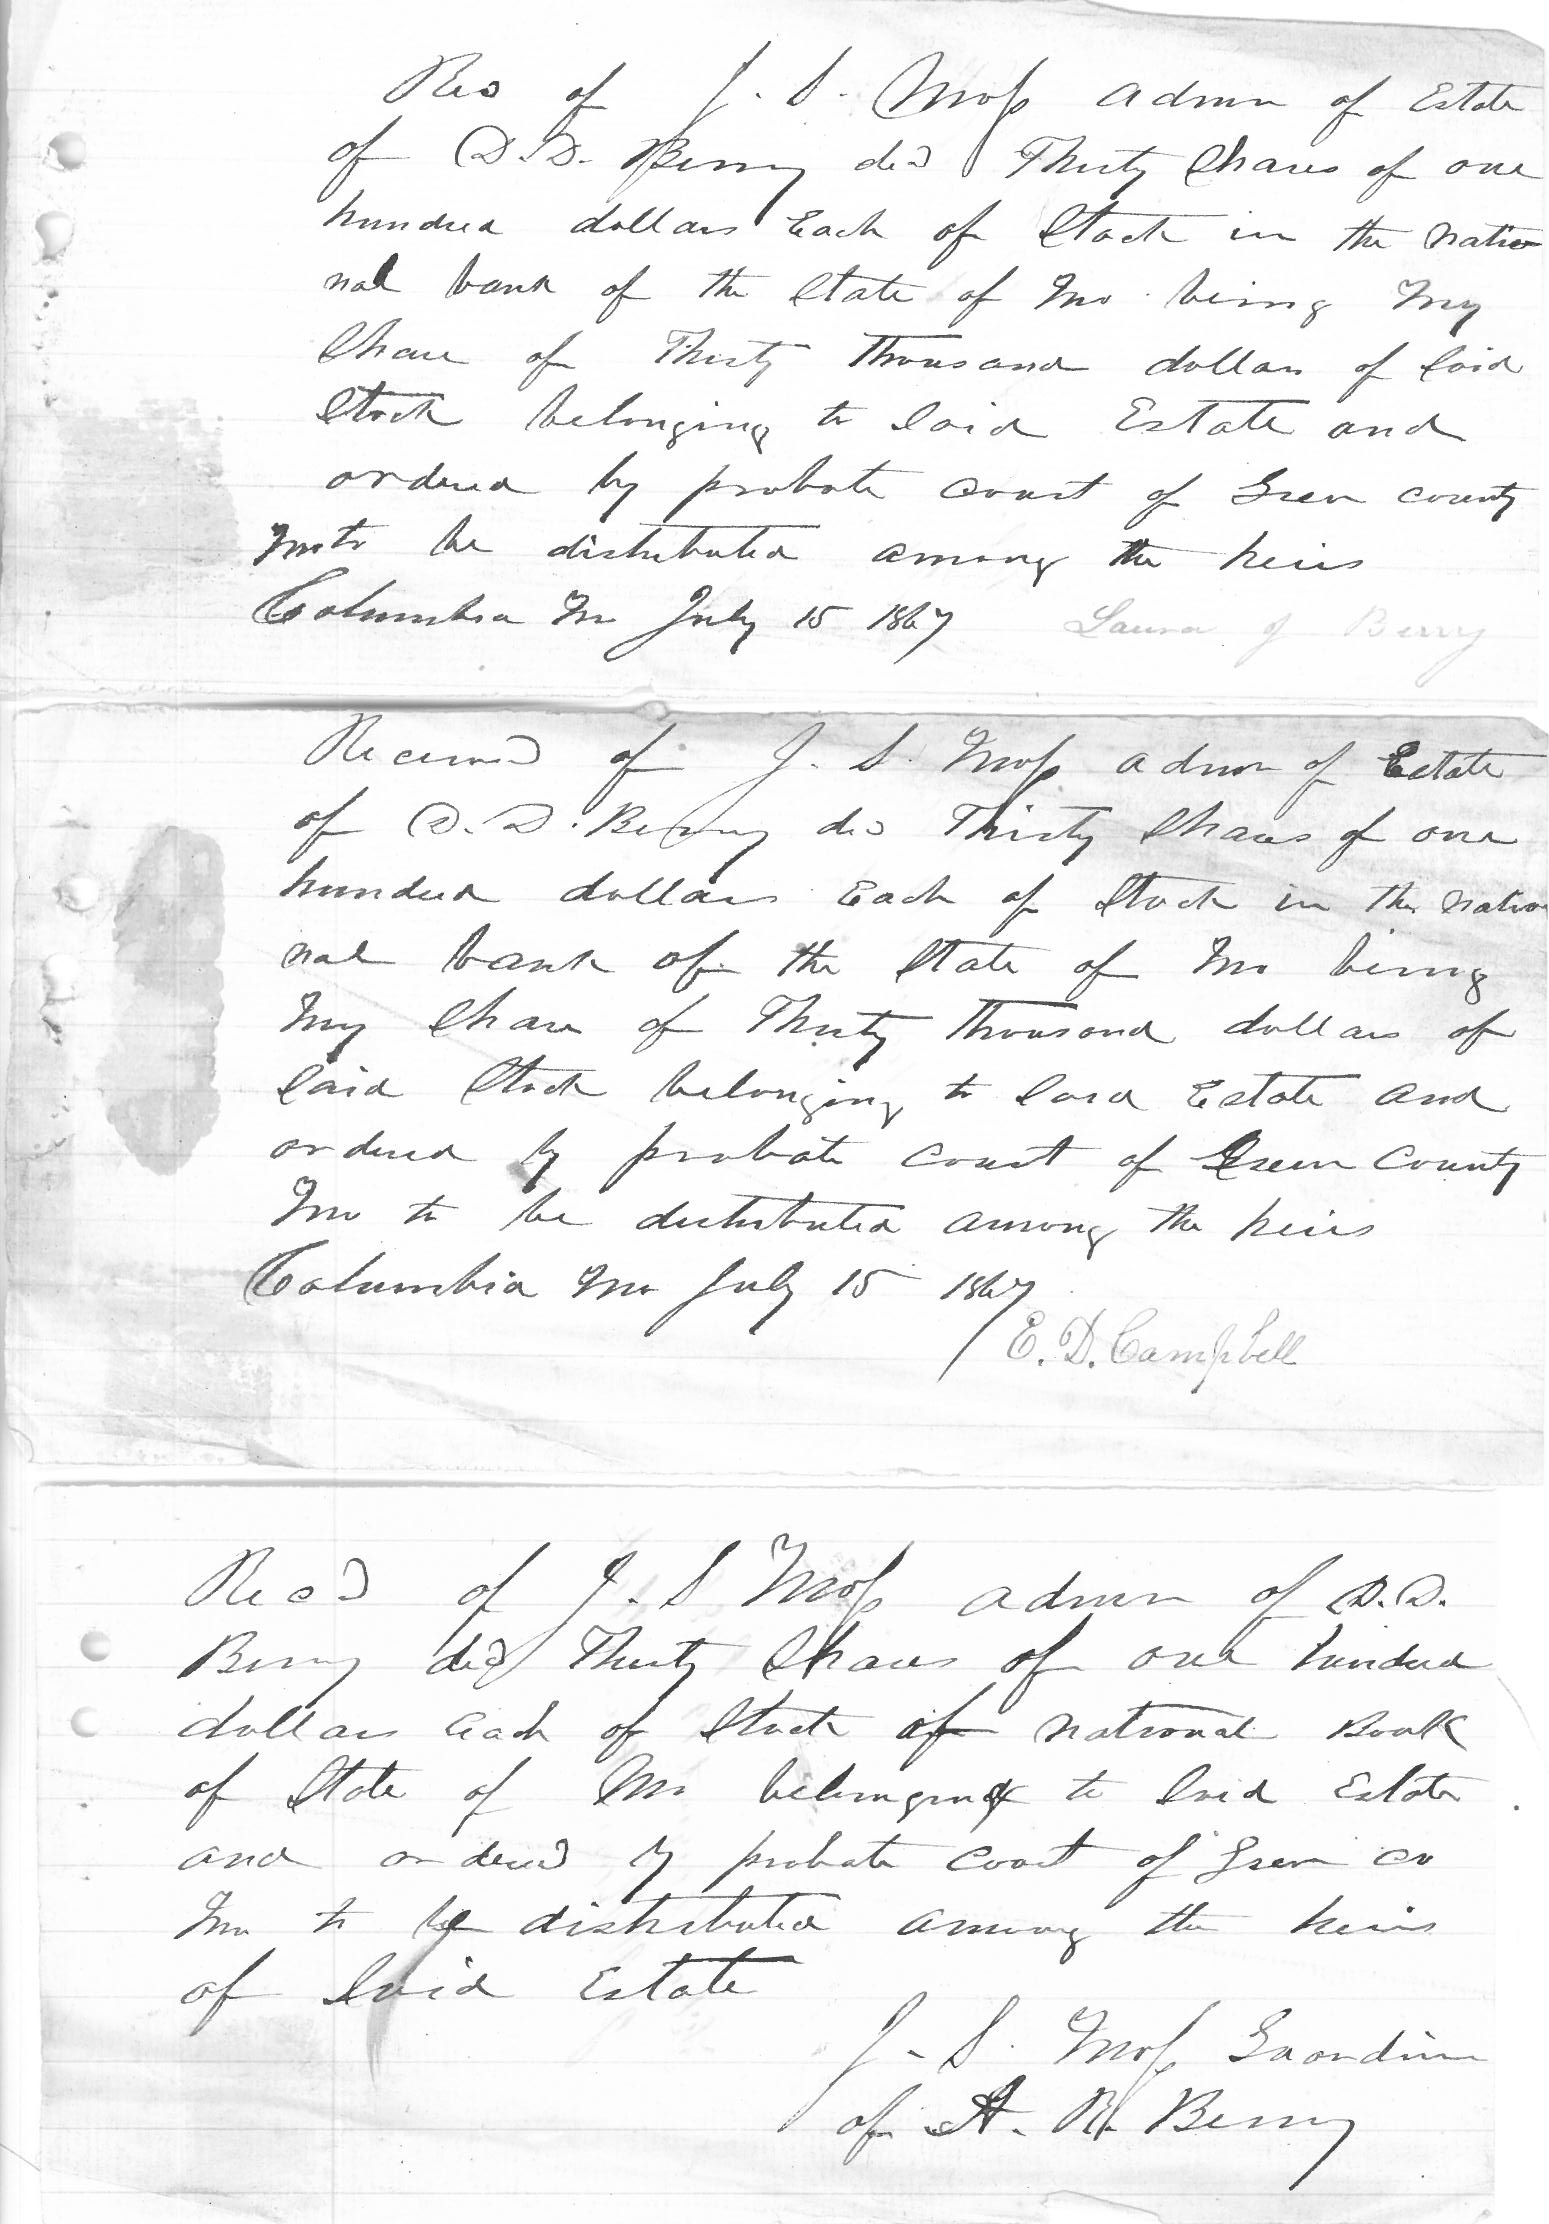 Recd of J. S. Moss admr of Estate
of D. D. Berry decd Thirty Shares of one
hundred dollars Each of Stock in the natio
nal bank of the State of Mo being my
Share of Thirty thousand dollars of Said
Stock belonging to Said Estate and
ordered by probate court of Green county
Mo to be distributed among the heirs
Columbia Mo July 15 1867 Laura J Berry
Received of J. S. Moss admr of Estate
of D. D. Berry decd Thirty Shares of one
hundred dollars Each of Stock in the natio
nal bank of the State of Mo being
my Share of Thirty thousand dollars of
Said Stock belonging to Said Estate and
ordered by probate court of Green County
Mo to be distributed among the heirs
Columbia Mo July 15 1867
E. D. Campbell
Recd of J. S Moss admr of D. D.
Berry decd Thirty Shares of one hundred
dollars Each of Stock of national Bank
of State of Mo belonging to Said Estate
and ordered by probate court of Green co
Mo to be distributed among the heirs
of Said Estate
J. S. Moss Guardian
of A. R. Berry